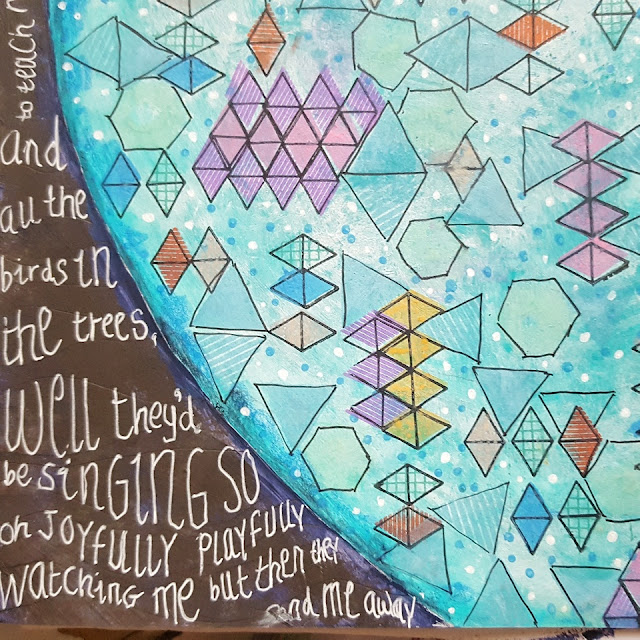 to teach
and
all the
birds in
the trees,
Well they'd
be singing so
oh joyfully playfully
watching me but then they
send me away